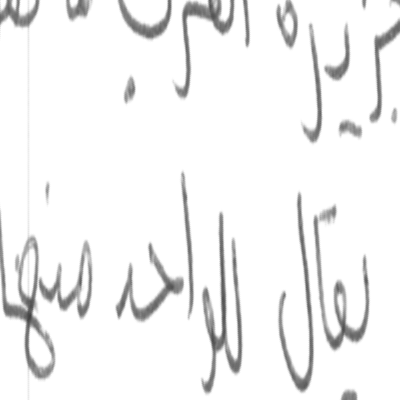 جزيرة العرب
يقال للواحد منها